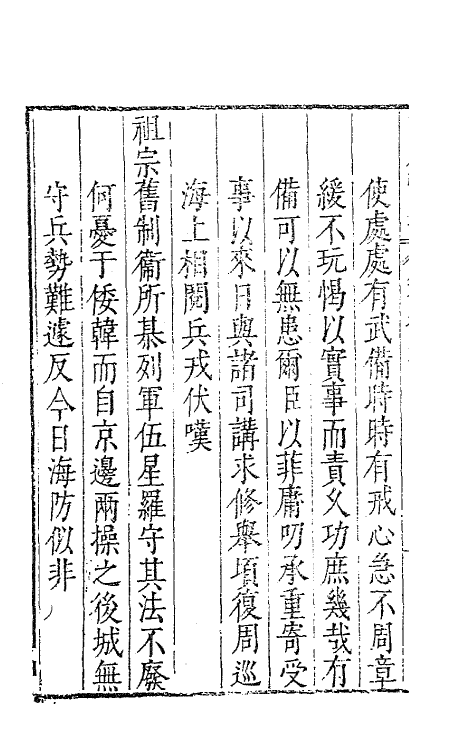 使處處有武備時時有戒心急不周章
緩不玩愒以實事而責久功庶幾哉有
備可以無患爾臣以菲庸叨承重寄受
事以來日與諸司講求修舉頃復周巡
海上相閱兵戎伏嘆
祖宗舊制衞所棊列軍伍星羅守其法不廢
何憂于倭韓而自京邊兩操之後城無
守兵勢難遽反今日海防似非